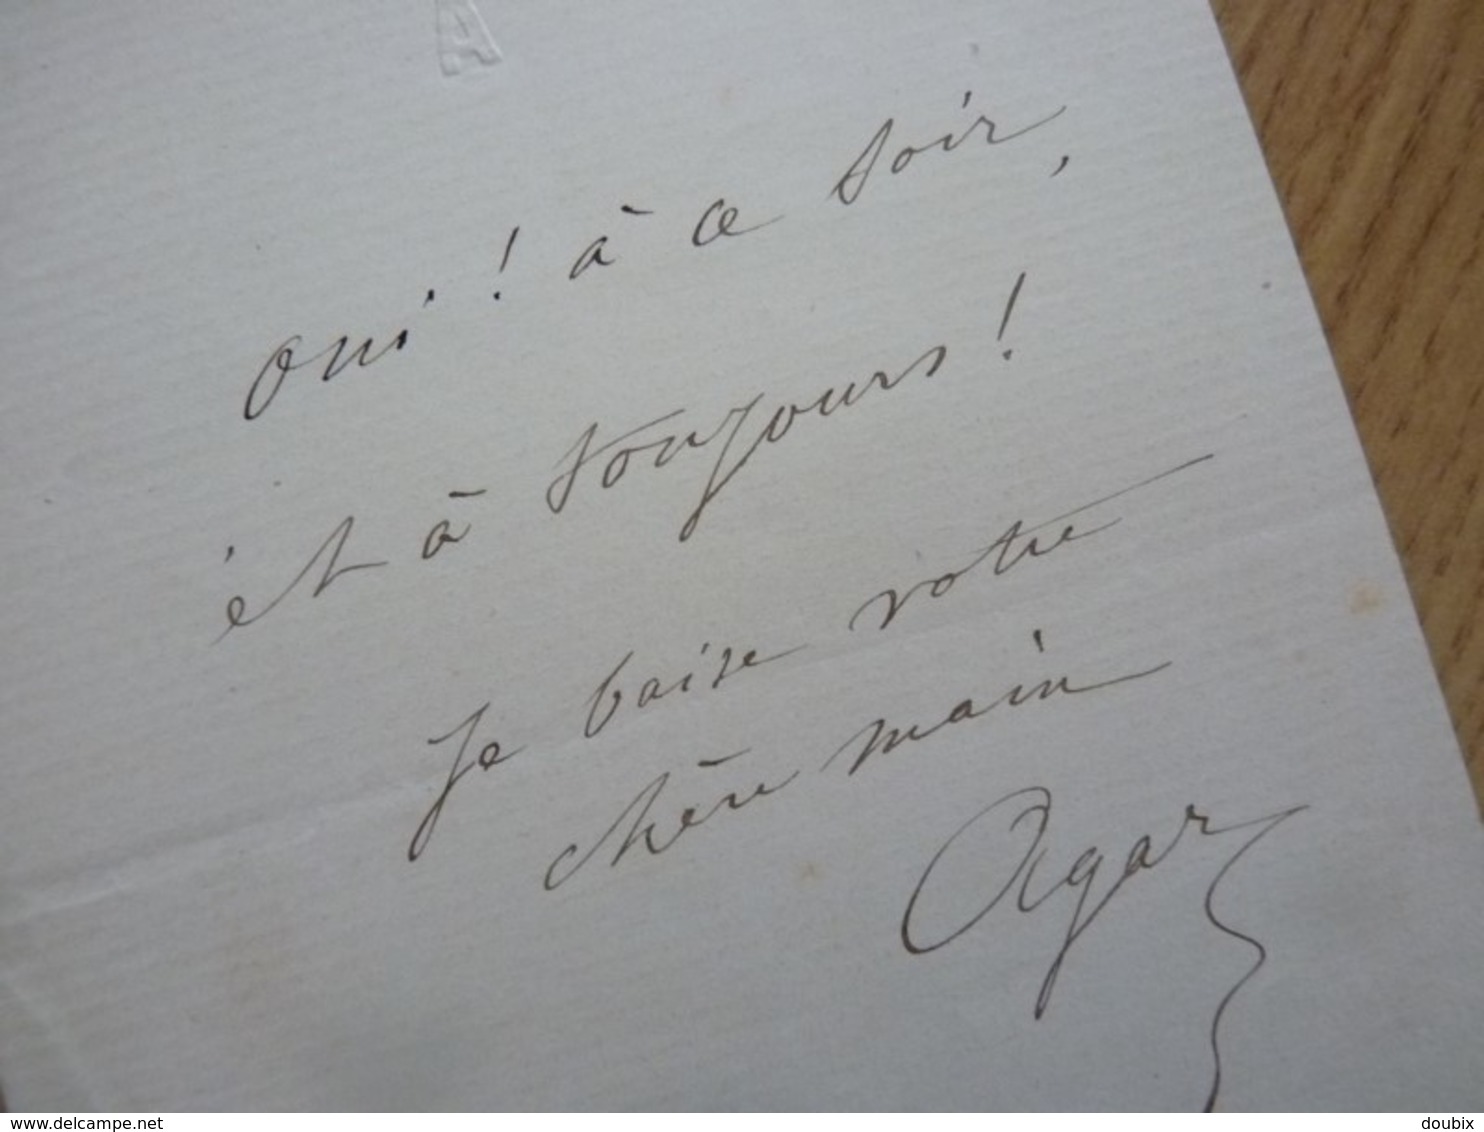 A
oui ! à ce soir,
et à toujours !
Je baise votre
chère main
Agar
© www.delcampe.net
doubix